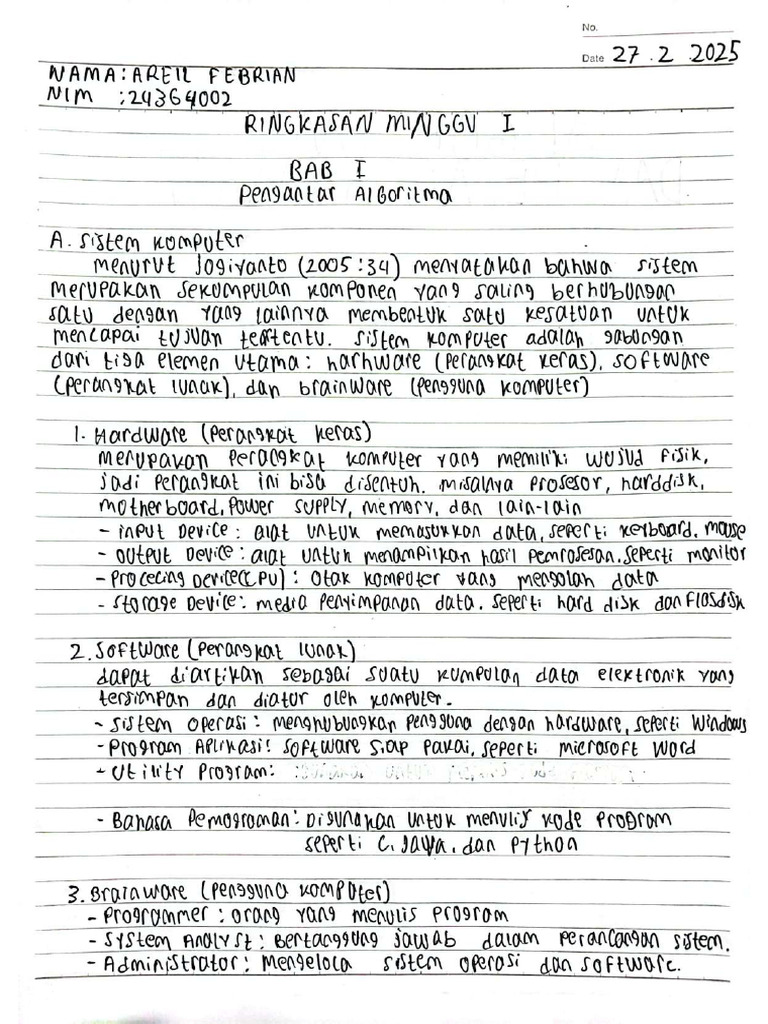 No.
Date 27 . 2 . 2025
NAMA : AREIL FEBRIAN
NIM : 24364002
RINGKASAN MINGGU I
BAB I
Pengantar Algoritma
A. Sistem Komputer
menurut Jogiyanto (2005:34) menyatakan bahwa sistem
merupakan sekumpulan komponen yang saling berhubungan
satu dengan yang lainnya membentuk satu kesatuan untuk
mencapai tujuan tertentu. sistem komputer adalah gabungan
dari tiga elemen utama : harhware (perangkat keras), software
(perangkat lunak), dan brainware (pengguna komputer)
1. Hardware (perangkat keras)
merupakan perangkat komputer yang memiliki wujud fisik,
jadi perangkat ini bisa disentuh. misalnya prosesor, harddisk,
motherboard, power supply, memory, dan lain-lain
- input Device : alat untuk memasukkan data, seperti keyboard, mouse
- output Device : alat untuk menampilkan hasil pemrosesan, seperti monitor
- Proceting Device(CPU) : otak komputer yang mengolah data
- Storage Device : media penyimpanan data. seperti hard disk dan flasdisk
2. Software (perangkat lunak)
dapat diartikan sebagai suatu kumpulan data elektronik yang
tersimpan dan diatur oleh komputer.
- sistem operasi : menghubungkan pengguna dengan hardware, seperti Windows
- Program Aplikasi : software siap pakai, seperti microsoft word
- Utility Program :
- Bahasa Pemograman : Digunakan untuk menulis kode program
seperti C, Java, dan Python
3. Brainware (pengguna komputer)
- Programmer : orang yang menulis program
- System Analyst : Bertanggung jawab dalam perancangan sistem.
- Administrator : Mengelola sistem operasi dan software.